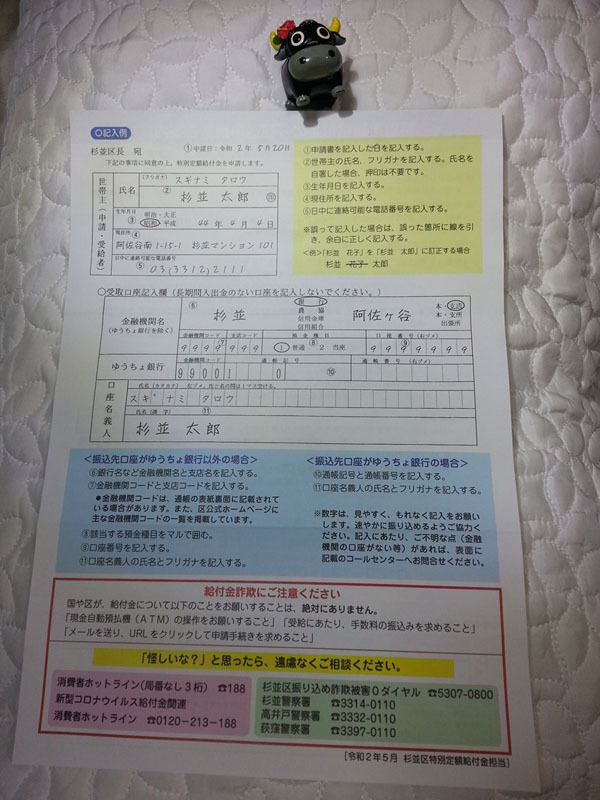 ○記入例
杉並区長 宛
①申請日：令和 2年 5月20日
下記の事項に同意の上、特別定額給付金を申請します。
世帯主(申請・受給者)
氏名
(フリガナ) スギナミ タロウ
② 杉並 太郎 ㊞
生年月日
③ 明治・大正
昭和・平成 44年 4月 4日
現住所 ④
阿佐谷南1-15-1 杉並マンション101
日中に連絡可能な電話番号
⑤ 03(3312)2111
①申請書を記入した日を記入する。
②世帯主の氏名、フリガナを記入する。氏名を
自署した場合、押印は不要です。
③生年月日を記入する。
④現住所を記入する。
⑤日中に連絡可能な電話番号を記入する。
※誤って記入した場合は、誤った箇所に線を引
き、余白に正しく記入する。
<例>「杉並 花子」を「杉並 太郎」に訂正する場合
杉並 花子 太郎
○受取口座記入欄(長期間入出金のない口座を記入しないでください。)
金融機関名
(ゆうちょ銀行を除く)
⑥ 杉並
銀行
農協
信用金庫
信用組合
阿佐ヶ谷
本・支店
本・支所
出張所
金融機関コード 支店コード 預金種目 口座番号(右ヅメ)
9999 ⑦ 999 ① 普通 ⑧ 2 当座 9999999 ⑨
ゆうちょ銀行
金融機関コード 通帳記号 通帳番号 (右ヅメ)
99001 0 ⑩
口座名義人
氏名(カタカナ) 左ヅメ、氏と名の間は1マス空ける。
スギナミ タロウ
氏名(漢字) ⑪
杉並 太郎
<振込先口座がゆうちょ銀行以外の場合>
⑥銀行名など金融機関名と支店名を記入する。
⑦金融機関コードと支店コードを記入する。
●金融機関コードは、通帳の表紙裏面に記載されて
いる場合があります。また、区公式ホームページに
主な金融機関コードの一覧を掲載しています。
⑧該当する預金種目をマルで囲む。
⑨口座番号を記入する。
⑪口座名義人の氏名とフリガナを記入する。
<振込先口座がゆうちょ銀行の場合>
⑩通帳記号と通帳番号を記入する。
⑪口座名義人の氏名とフリガナを記入する。
※数字は、見やすく、もれなく記入をお願い
します。速やかに振り込めるようご協力く
ださい。記入にあたり、ご不明な点(金融
機関の口座がない等)があれば、表面に
記載のコールセンターへお問合せください。
給付金詐欺にご注意ください
国や区が、給付金について以下のことをお願いすることは、絶対にありません。
「現金自動預払機(ATM)の操作をお願いすること」「受給にあたり、手数料の振込みを求めること」
「メールを送り、URLをクリックして申請手続きを求めること」
「怪しいな？」と思ったら、遠慮なくご相談ください。
消費者ホットライン(局番なし3桁) ☎188
新型コロナウイルス給付金関連
消費者ホットライン ☎0120-213-188
杉並区振り込め詐欺被害0ダイヤル ☎5307-0800
杉並警察署 ☎3314-0110
高井戸警察署 ☎3332-0110
荻窪警察署 ☎3397-0110
[令和2年5月 杉並区特別定額給付金担当]